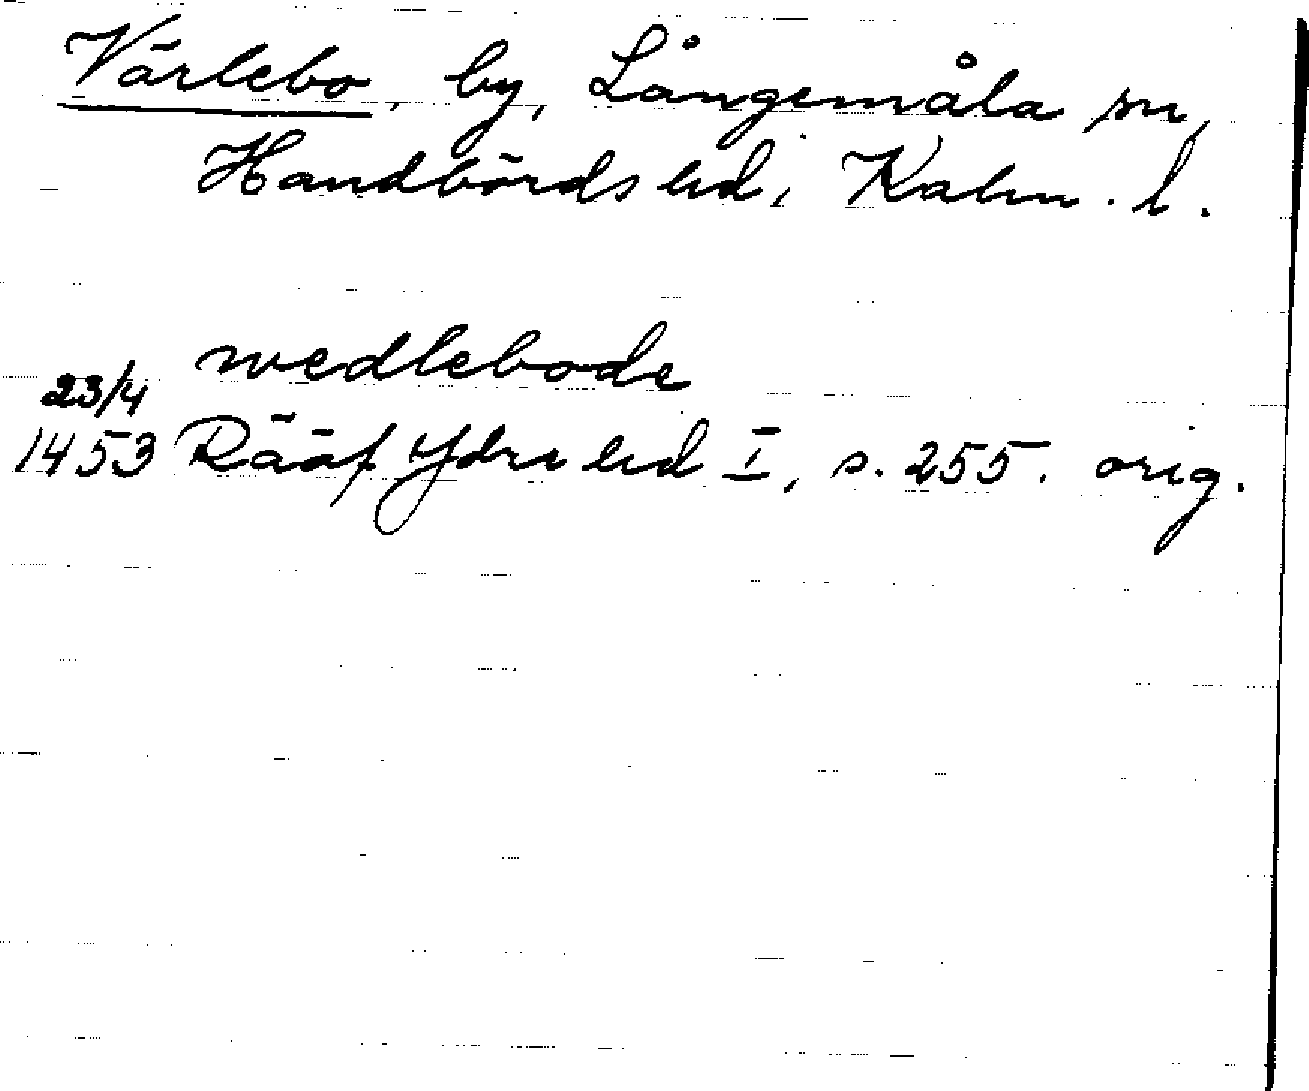 Värlebo, by, Långemåla sn,
Handbörds hd, Kalm. l.
wedlebode
23/4
1453 Rääf Ydre hd I, s. 255. orig.